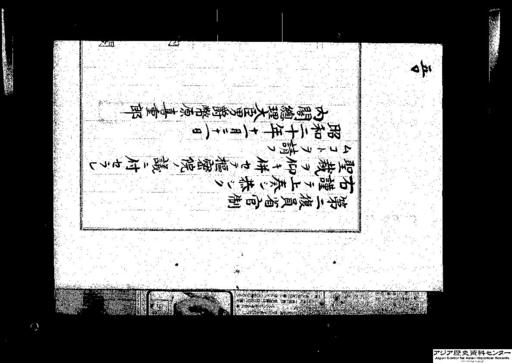 五
第二復員省官制
右謹テ上奏シ恭シク
聖裁ヲ仰キ併セテ樞密院ノ議ニ付セラレ
ムコトヲ請フ
昭和二十年十一月二十一日
內閣總理大臣男爵幣原喜重郎
アジア歴史資料センター
Japan Center for Asian Historical Records